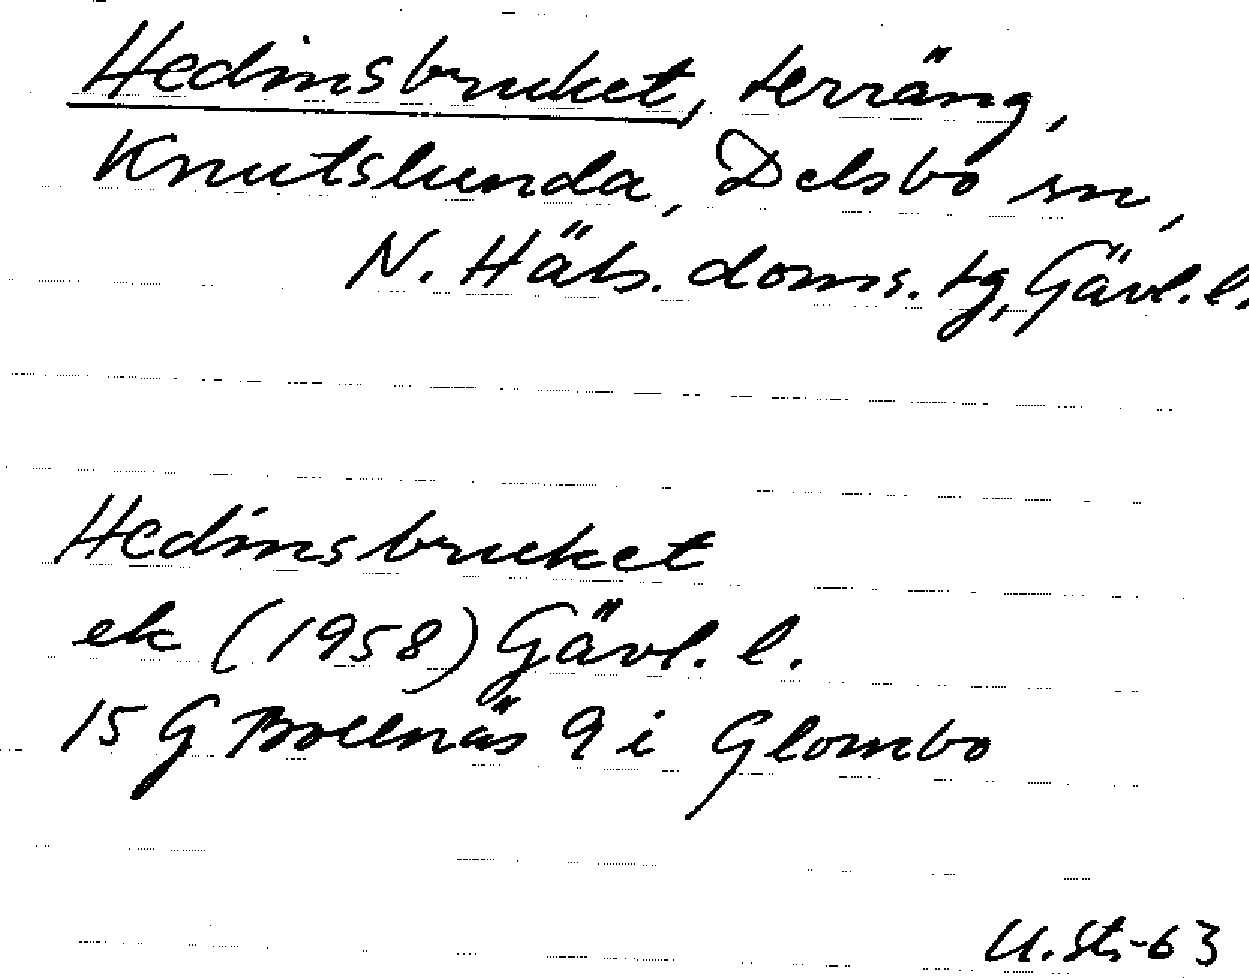 Hedinsbruket, terräng,
Knutslunda, Delsbo sn,
N. Häls. doms. tg, Gävl. l.
Hedinsbruket
ek (1958) Gävl. l.
15 G Bollnäs 9 i Glombo
U. St. -63